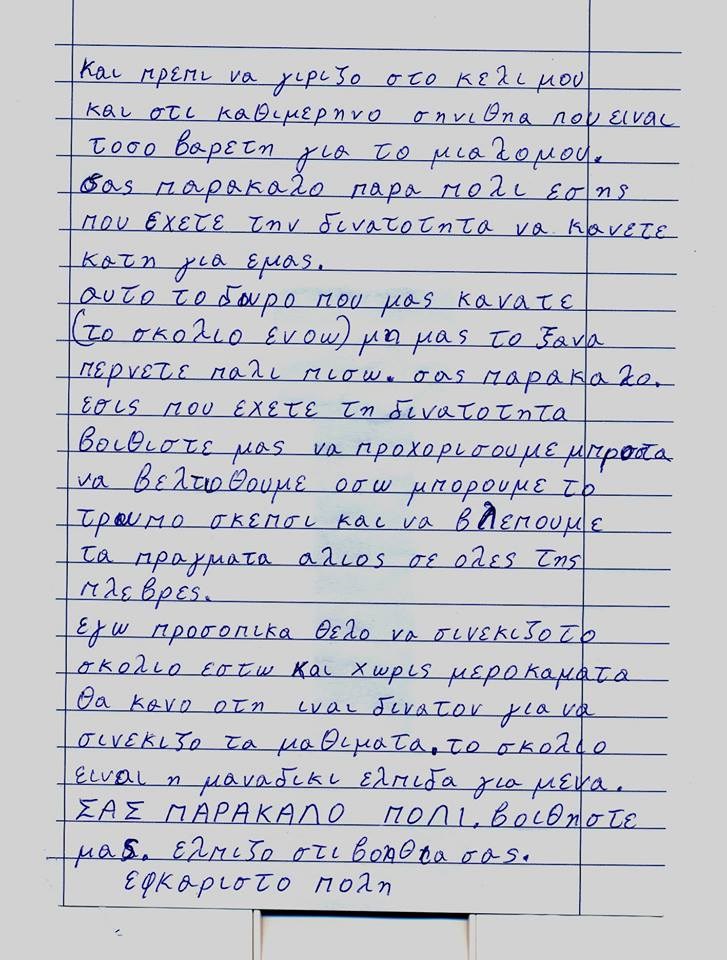 και πρεπι να γιριζο στο κελι μου
και στι καθιμερηνο σηνιθηα που ειναι
τοσο βαρετη για το μιαλομου.
σας παρακαλο παρα πολι εσης
που εχετε την δινατοτητα να κανετε
κατη για εμας.
αυτο το δωρο που μας κανατε
(το σκολιο ενοω) μη μας το ξανα
περνετε παλι πισω. σας παρακαλο.
εσις που εχετε τη δινατοτητα
βοιθιστε μας να προχορισουμε μπροστα
να βελτιοθουμε οσω μπορουμε το
τροπο σκεπσι και να βλεπουμε
τα πραγματα αλιος σε ολες της
πλεβρες.
εγω προσοπικα θελο να σινεκιζο το
σκολιο εστω και χωρις μεροκαματα
θα κανο οτη ιναι δινατον για να
σινεκιζο τα μαθιματα. το σκολιο
ειναι η μαναδικι ελπιδα για μενα.
ΣΑΣ ΠΑΡΑΚΑΛΟ ΠΟΛΙ. βοιθηστε
μας. ελπιζο στι βοηθια σας.
εφκαριστο πολη